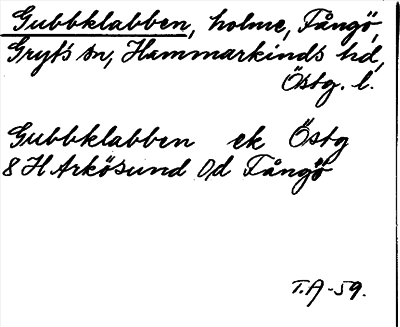 Gubbklabben, holme, Fångö,
Gryts sn, Hammarkinds hd,
Östg. l.
Gubbklabben ek Östg
8 H Arkösund 0,d Fångö
T.A-59.